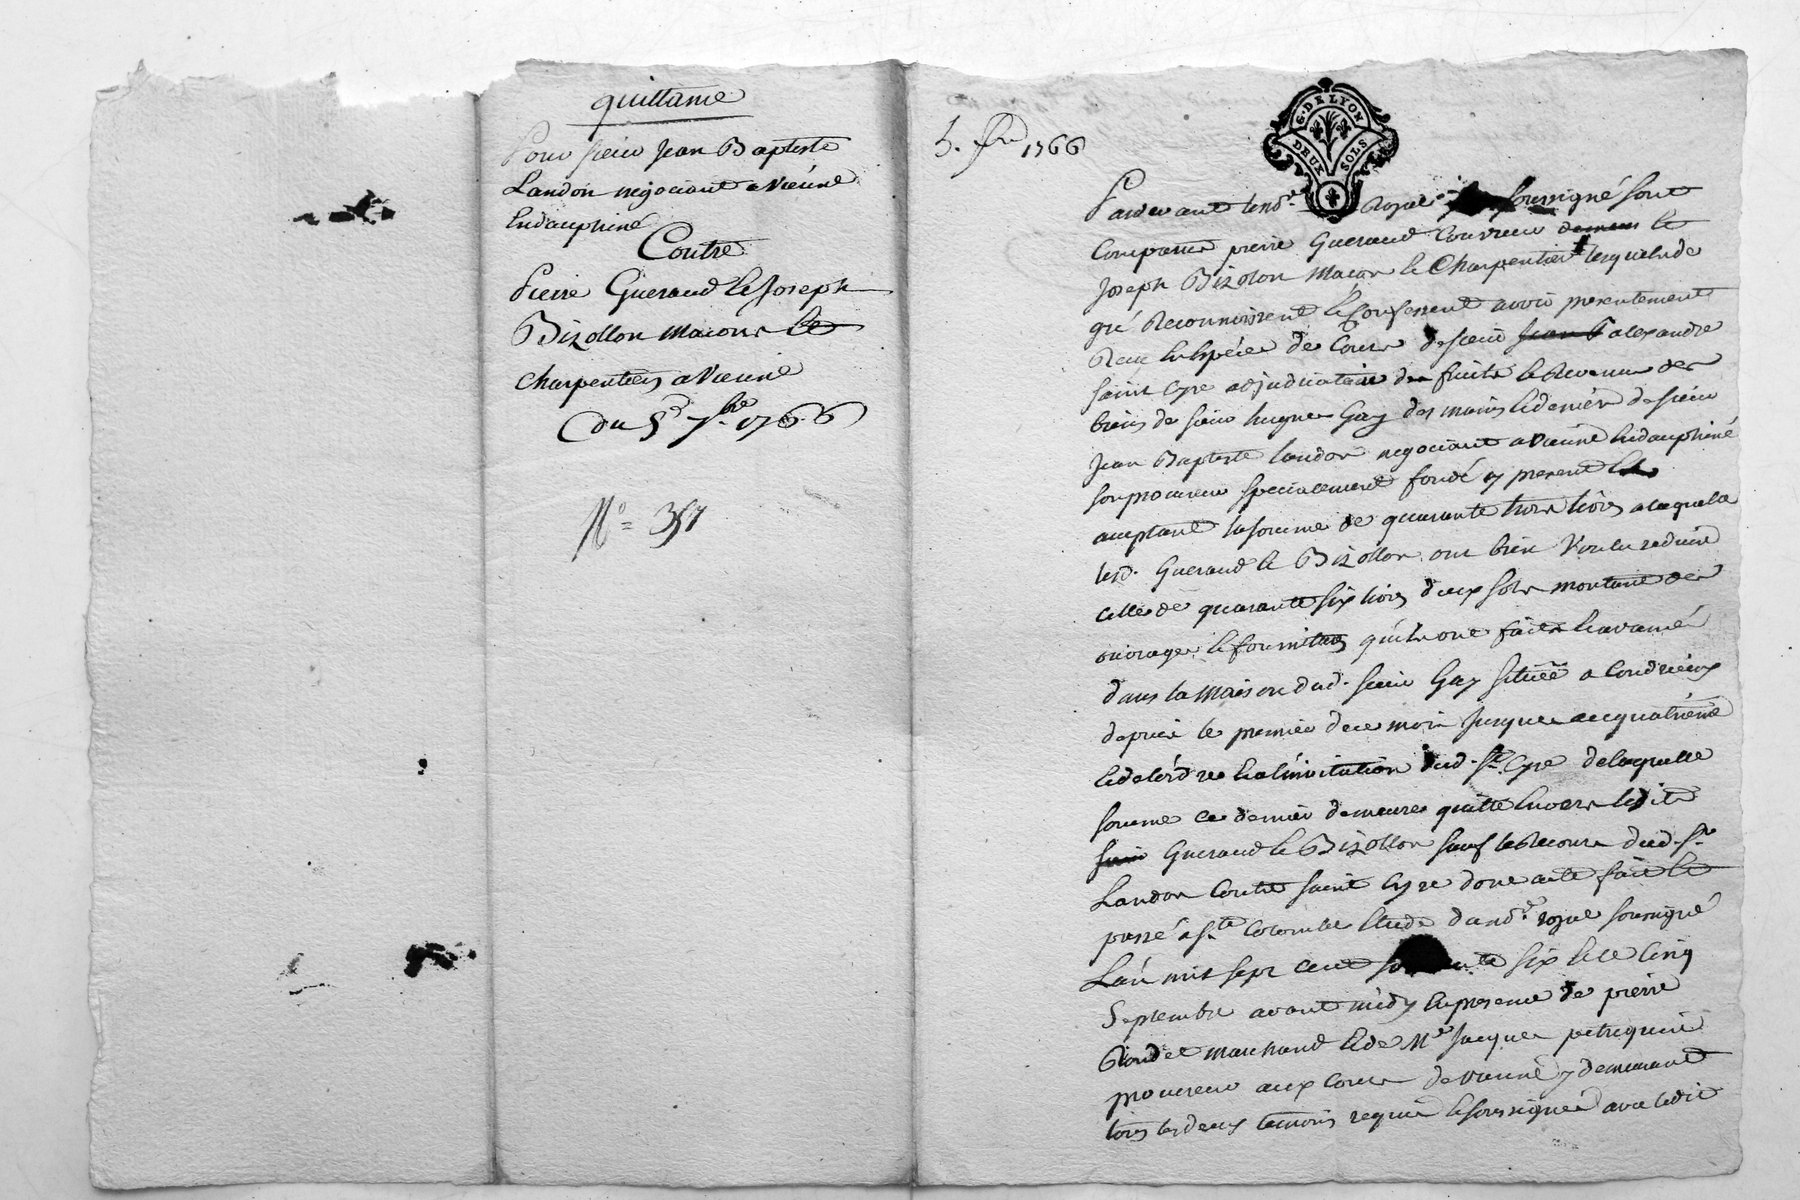 quittance
Pour sieur Jean Baptiste
Landon negociant a Vienne
Endauphiné
Contre
Pierre Gueraud & Joseph
Bizollon macons &
Charpentiers a Vienne
du 5e 7bre 1766
N° = 357
5. 7bre 1766
G. DE LYON
DEUX SOLS
Pardevant leno.re Royal soussigné sont
Comparus pierre Gueraud Couvreur &
Joseph Bizolon Macon & Charpentier lesquels de
gré Reconnoissent & Confessent avoir presentement
Reçu en Espéces de Cours de sieur alexandre
saint Cyre adjudicataire des fruits & Revenus des
biens de sieur hugues Gay des mains & deniers de sieur
Jean Baptiste landon negociant a Vienne Endauphiné
son procureur specialement fondé y present &
acceptant la somme de quarante trois livres a laquelle
lesd. Gueraud & Bizollon ont bien Voulu reduire
celle de quarante six livres deux sols montant des
ouvrages & fournitures qu'ils ont faites & avancé
dans la Maison dud. sieur Gay située a Condrieux
depuis le premier de ce mois jusques au quatrieme
& de l'ordre & a l'invitation dud. St. Cyre de laquelle
somme ce dernier demeure quitte Envers lesdits
Gueraud & Bizollon sauf le Recours dud. Sr.
Landon Contre saint Cyre dont acte fait &
passé a Ste Colombe Etude dud no.re royal soussigné
L'an mil sept cent six & le Cinq
Septembre avant midy En presence de pierre
marchand & de Me Jacques petrequin
procureur aux Cours de Vienne y demeurant
tous les deux temoins requis & soussignés avec ledit